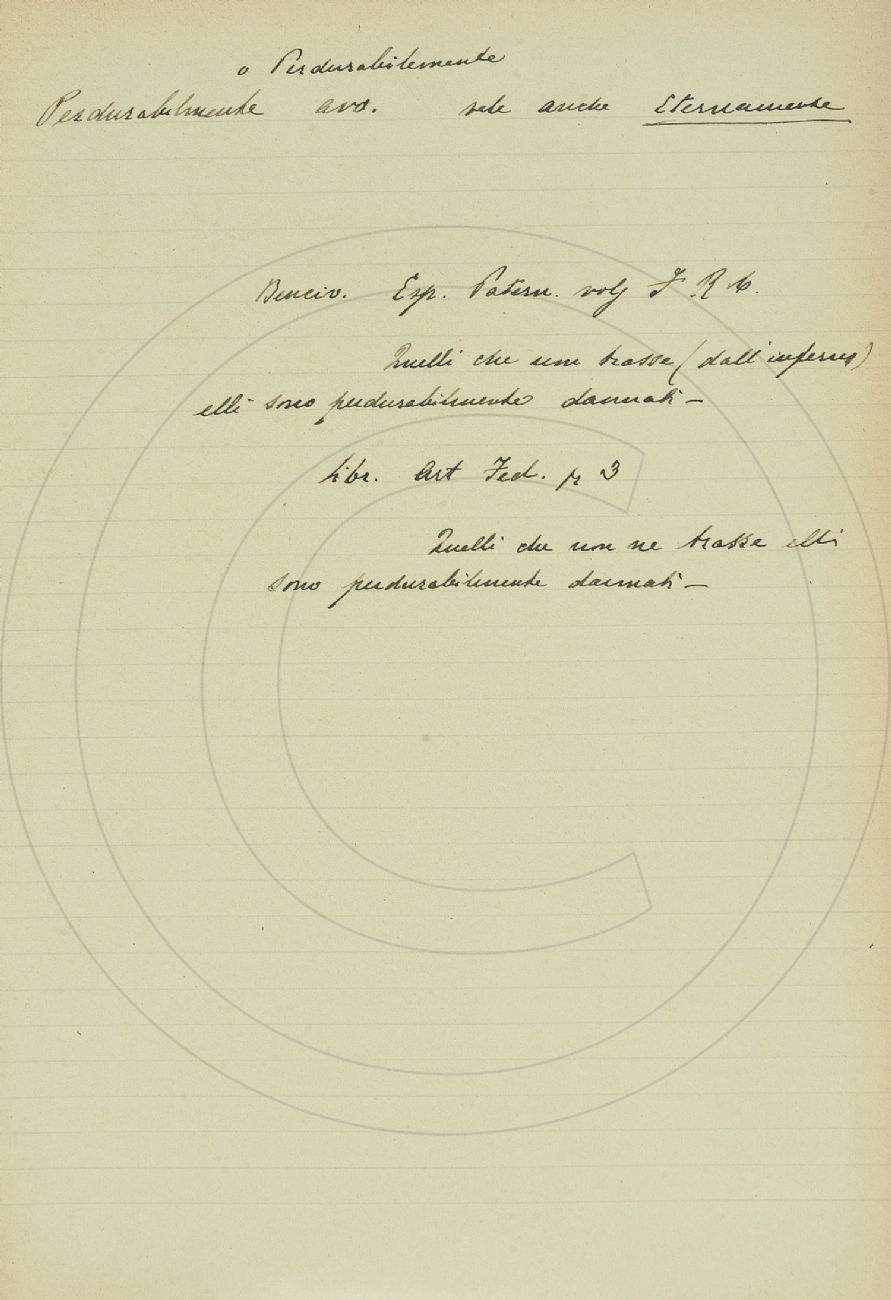 o Perdurabilemente
Perdurabilmente avv. vale anche Eternamente
Benciv. Esp. Patern. volg
Quelli che non trasse (dall'inferno)
elli sono perdurabilmente dannati -
Libr. Art Fed. p 3
Quelli che non ne trasse elli
sono perdurabilmente dannati -